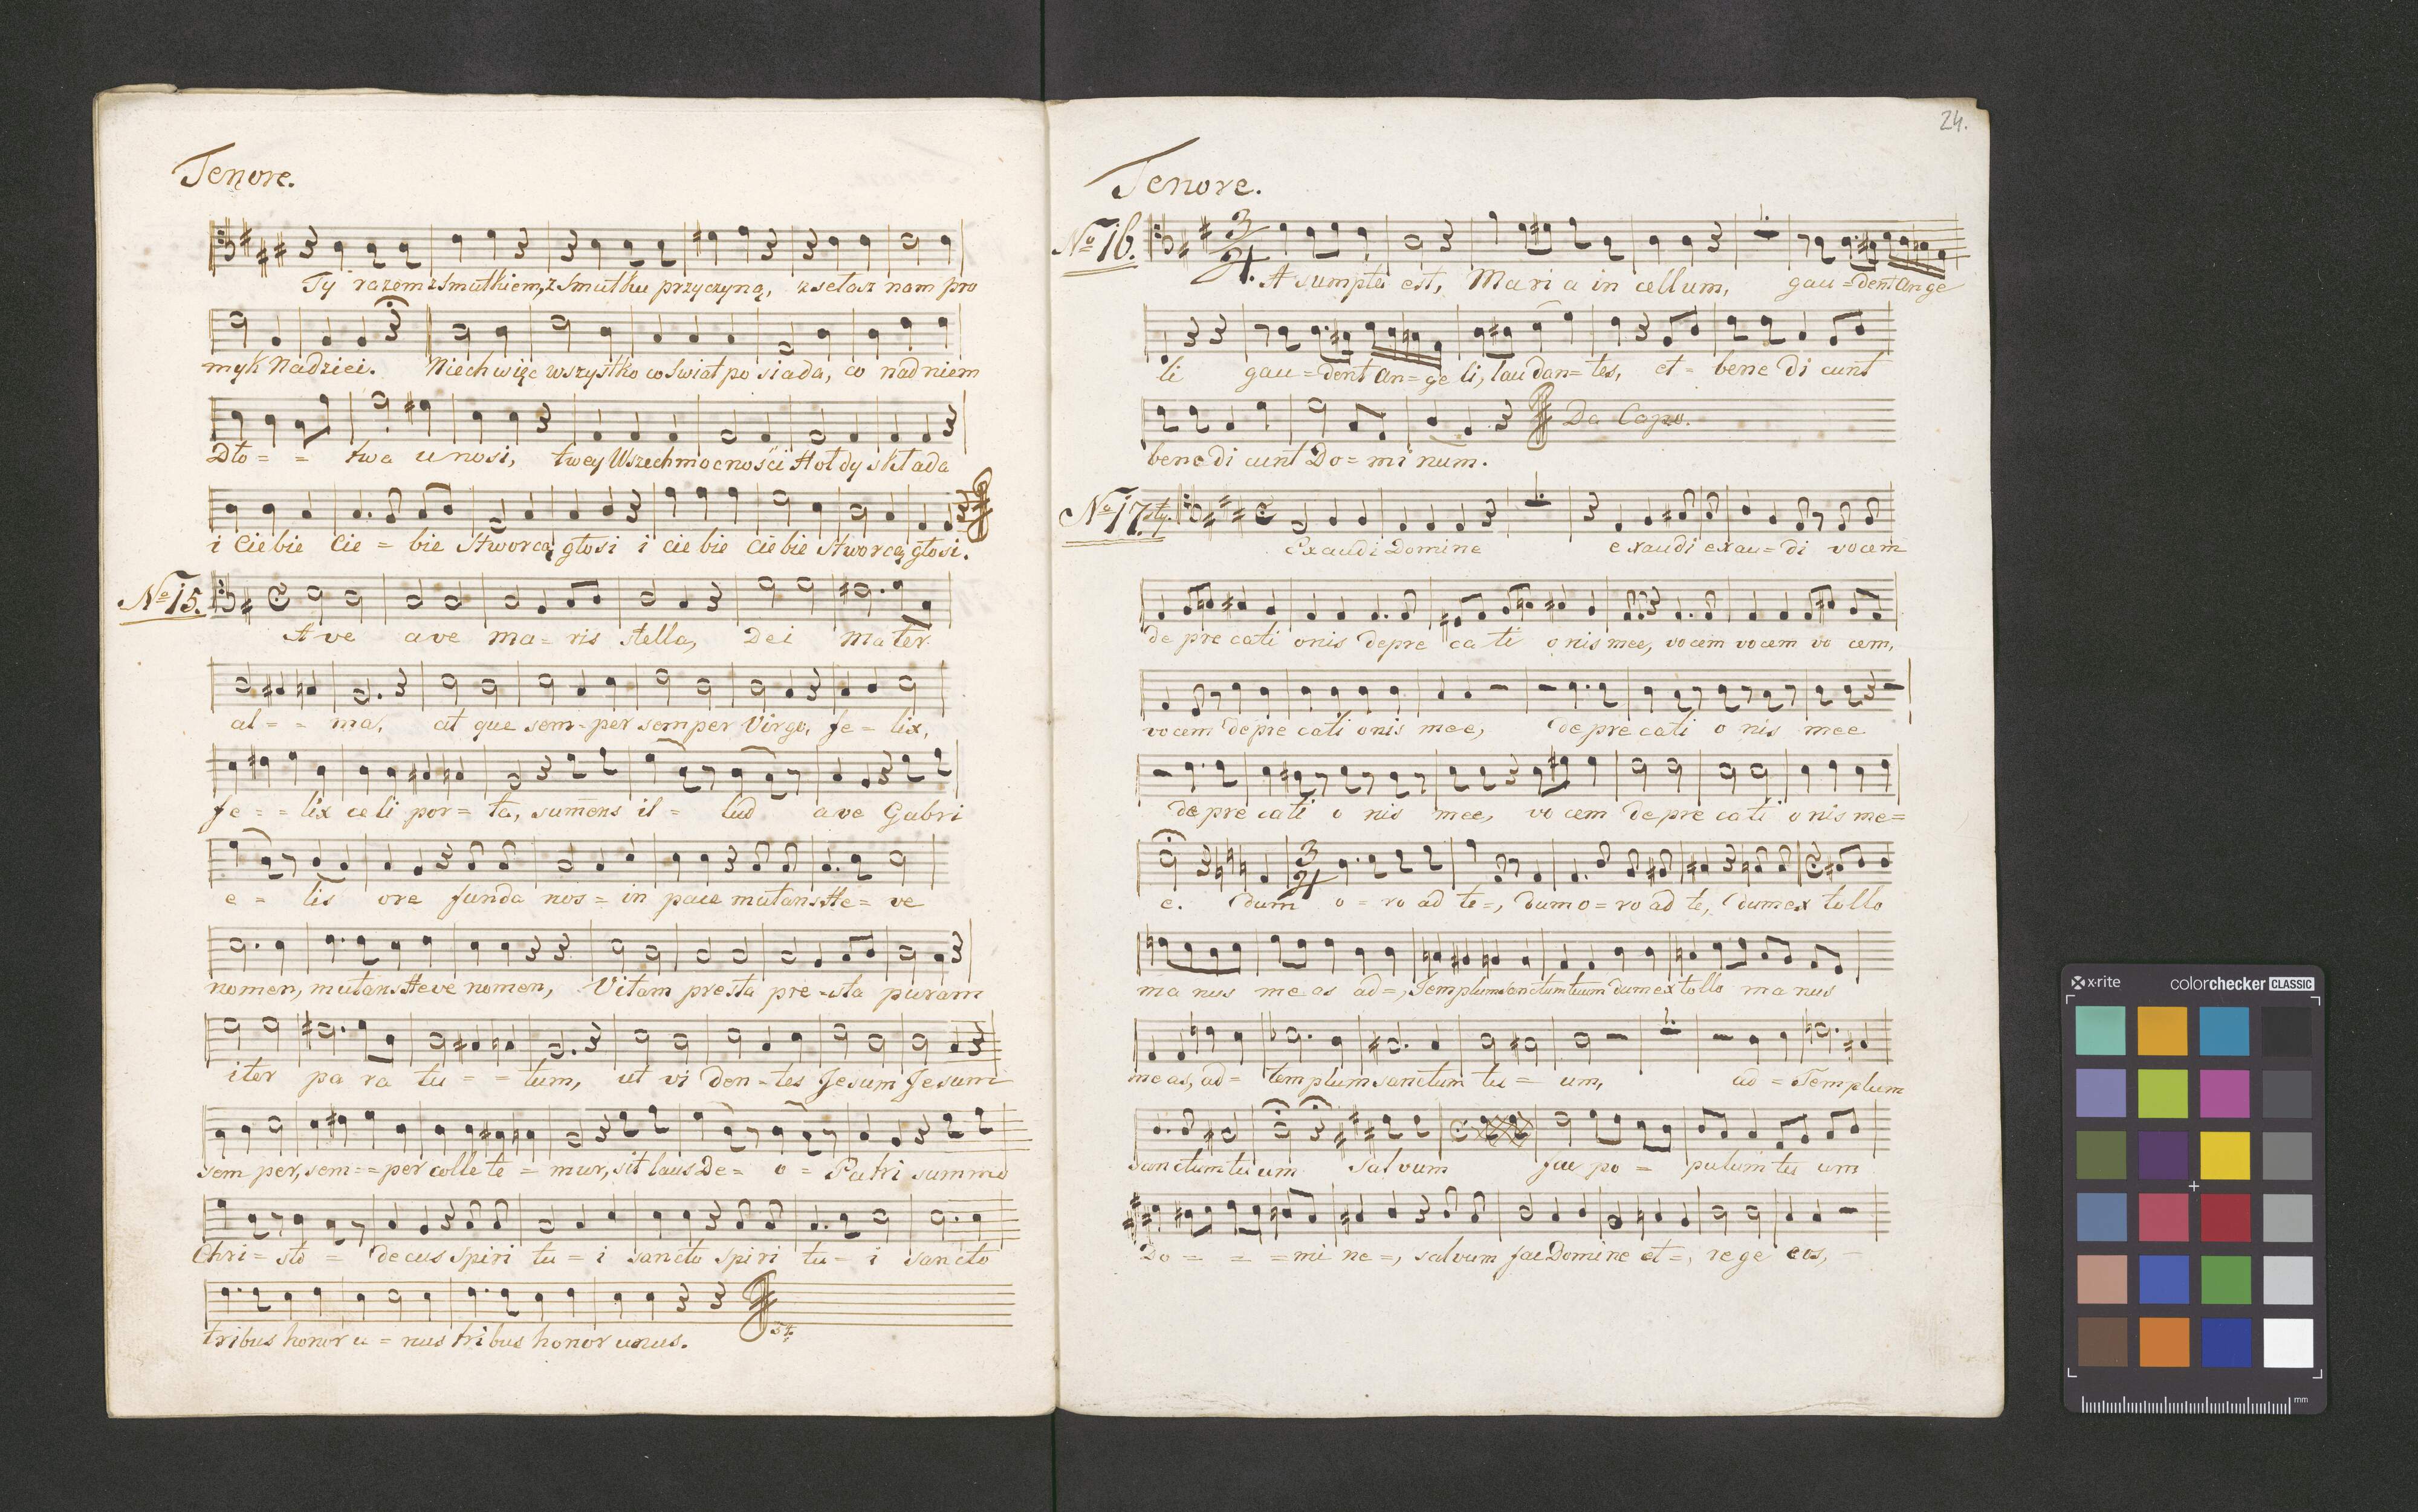 Tenore.
Ty razem z smutkiem, z smutku przyczyną, zsełasz nam pro
myk Nadziei. Niech więc wszystko co świat posiada, co nad niem
Dło = = twa unosi, twey Wszechmocności Hołdy składa
i Ciebie Cie = bie Stworcą głosi i ciebie ciebie stworcą głosi.
No 15. Ave ave ma = ris stella, Dei mater
al = = ma, at que sem = per semper Virgo, fe = lix,
fe = = lix celi por = ta, sumens il = lud ave Gabri
e = lis ore funda nos = in pace mutans He = ve
nomen, mutans Heve nomen, Vitam presta pre = sta puram
iter pa ra tu = = tum, ut vi den = tes Jesum Jesum
sem per, sem = = per colle te = mur, sit laus De = o = Patri summo
Chri = sto = decus spiri tu = i sancto spiri tu = i sancto
tribus honor u = nus tribus honor unus.
24.
Tenore.
No 16. 3/4. Asumpta est, Maria in cellum, gau = dent Ange
li gau = dent An = ge li, laudan = tes, et = bene di cunt
Da Capo.
bene di cunt Do = mi num.
No 17sty. Exaudi Domine exaudi exau = di vocem
de pre cati onis depre ca ti onis mee, vocem vocem vo cem,
vocem depre cati onis mee, de pre cati o nis mee
de pre cati o nis mee, vo cem de pre cati onis me =
3/4
e. dum o = ro ad te =, dum o = ro ad te, dum ex tollo
ma nus me as ad =, Templum sanctum tuum dum ex tollo ma nus
meas, ad = templum sanctum tu = um, ad = Templum
sanctum tu um salvum fac po = pulum tu um
Do = = = mi ne =, salvum fac Domine et =, rege eos,
x-rite colorchecker CLASSIC
mm